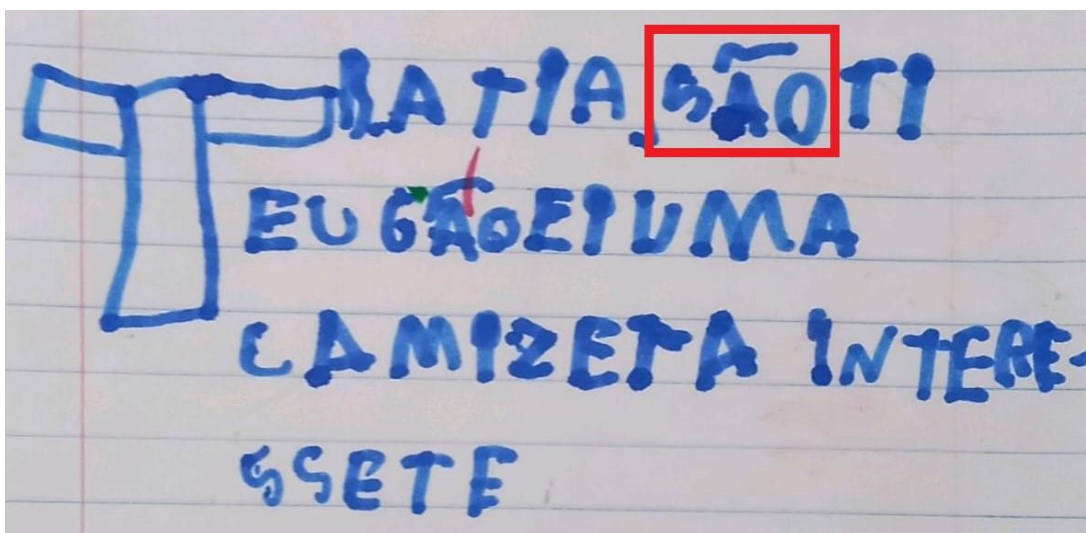 TIA TIA SÃO TI
EU GÃOEI UMA
CAMIZETA INTERE-
SSETE